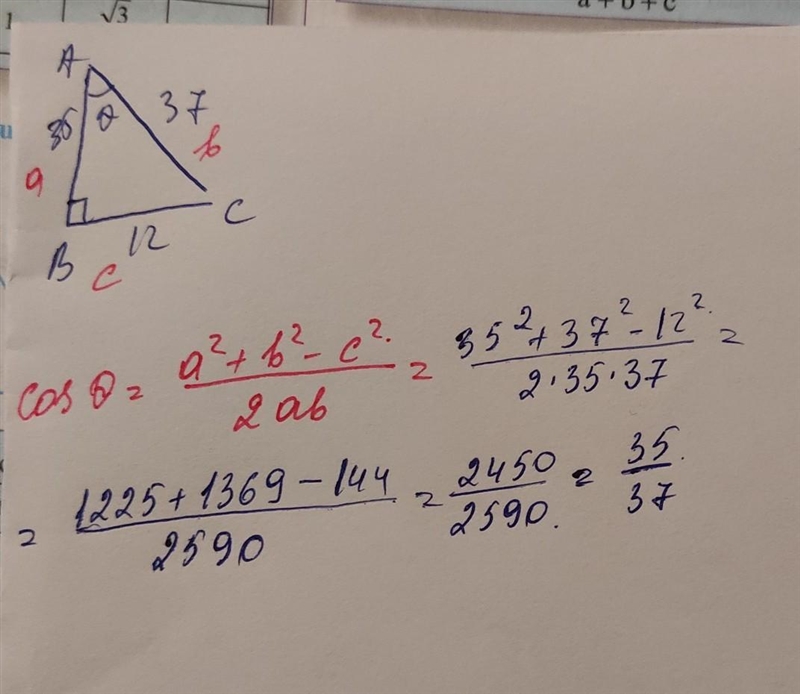 1 √3
a + b + c
A
35 θ 37
a b
B 12 C
c
cos θ = (a² + b² - c²)/(2ab) = (35² + 37² - 12²)/(2·35·37) =
= (1225 + 1369 - 144)/2590 = 2450/2590 = 35/37